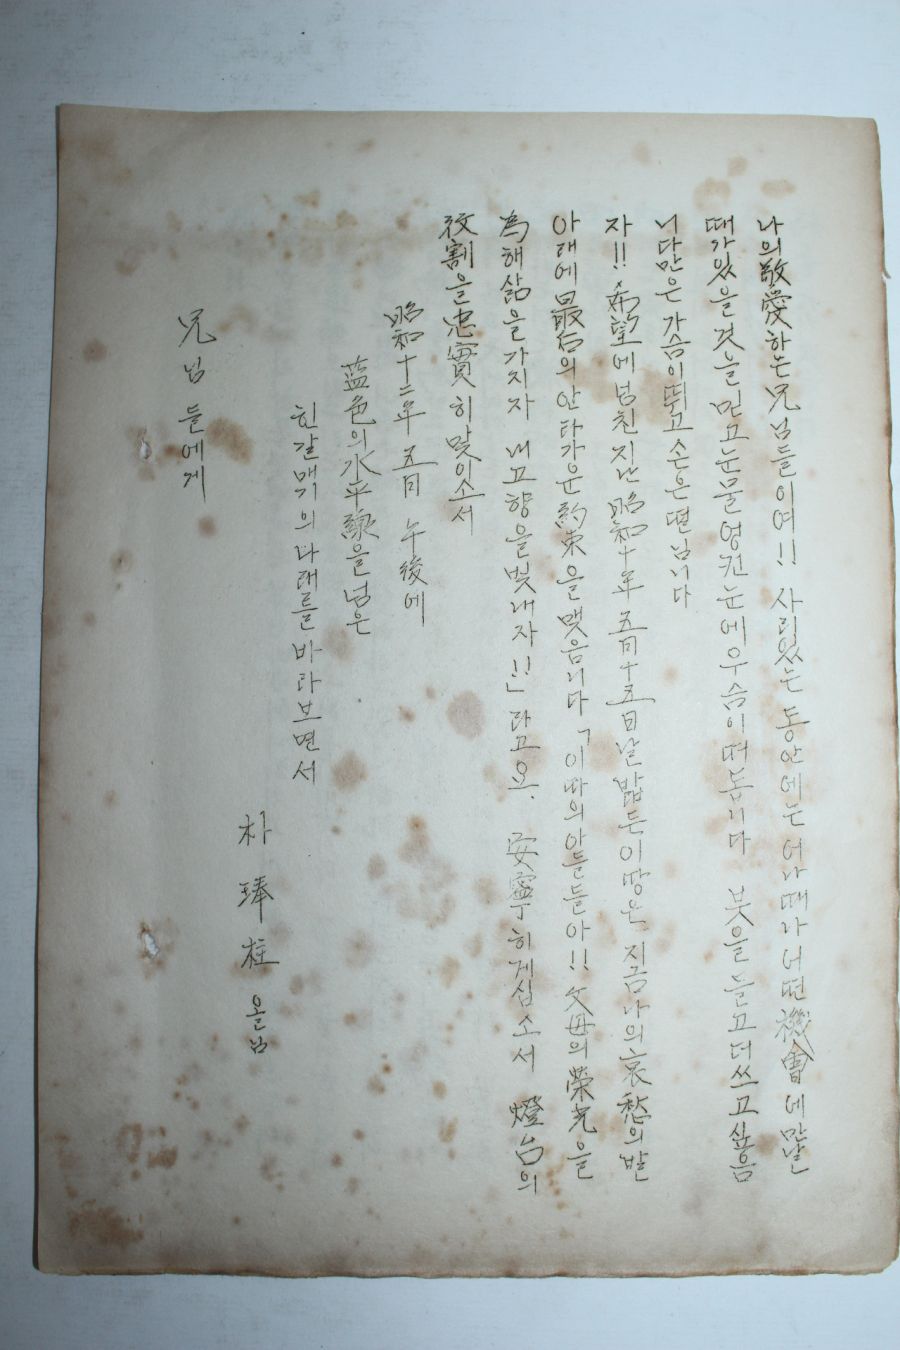 나의敬愛하는兄님들이여!! 사라있는 동안에는 어나때가 어떤機會에만날
때가있을것을 믿고눈물엉킨눈에우슴이떠돕니다 붓을들고더쓰고싶읍
니다만은 가슴이뛰고 손은떤님니다
자!! 希望에넘친지난 昭和十年 五月十五日날밟든이땅은 지금나의哀愁의발
아래에最后의안타가운約束을맺음니다 「이따의아들들아!! 父母의榮光을
為해삶을가지자 내고향을빛내자!!」라고요. 安寧히게심소서 燈台의
役割을忠實히맞이소서
昭和十二年 五月 午後에
蓝色의水平線을넘은
힌갈매기의나래를바라보면서
朴琫柱 올님
兄님들에게